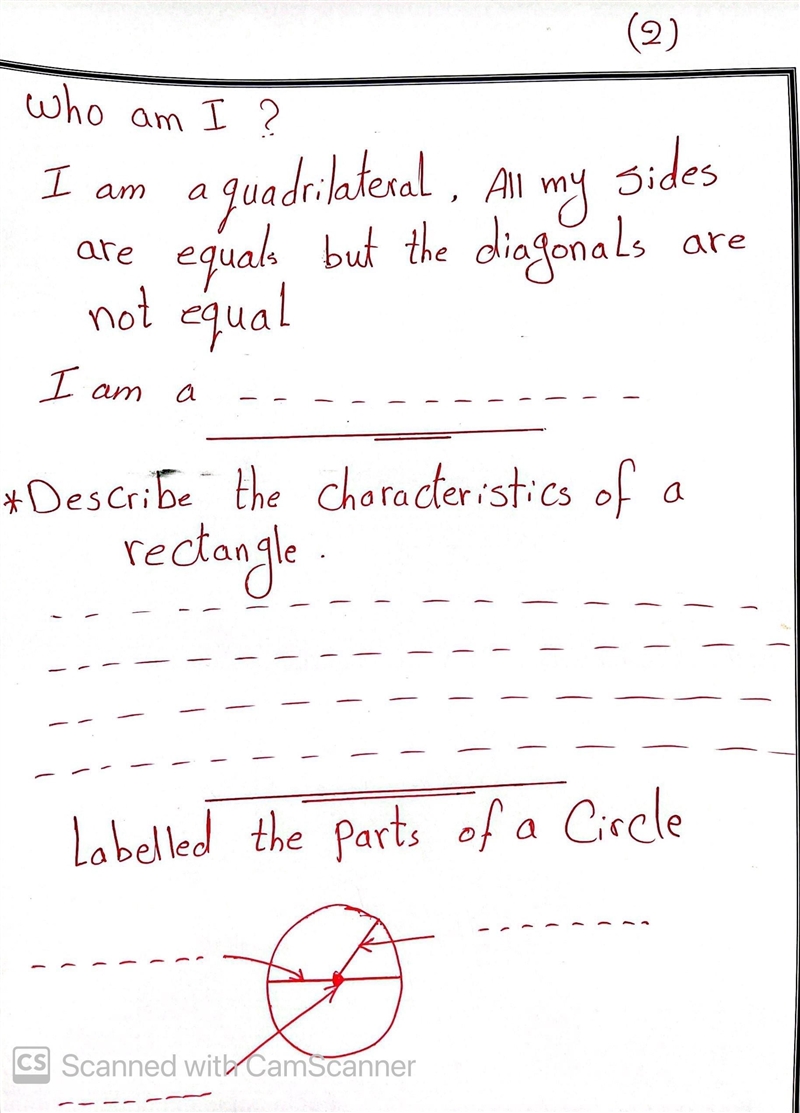 (2)
Who am I ?
I am a quadrilateral. All my sides
are equals but the diagonals are
not equal
I am a ------------
*Describe the characteristics of a
rectangle.
Labelled the parts of a Circle
CS Scanned with CamScanner